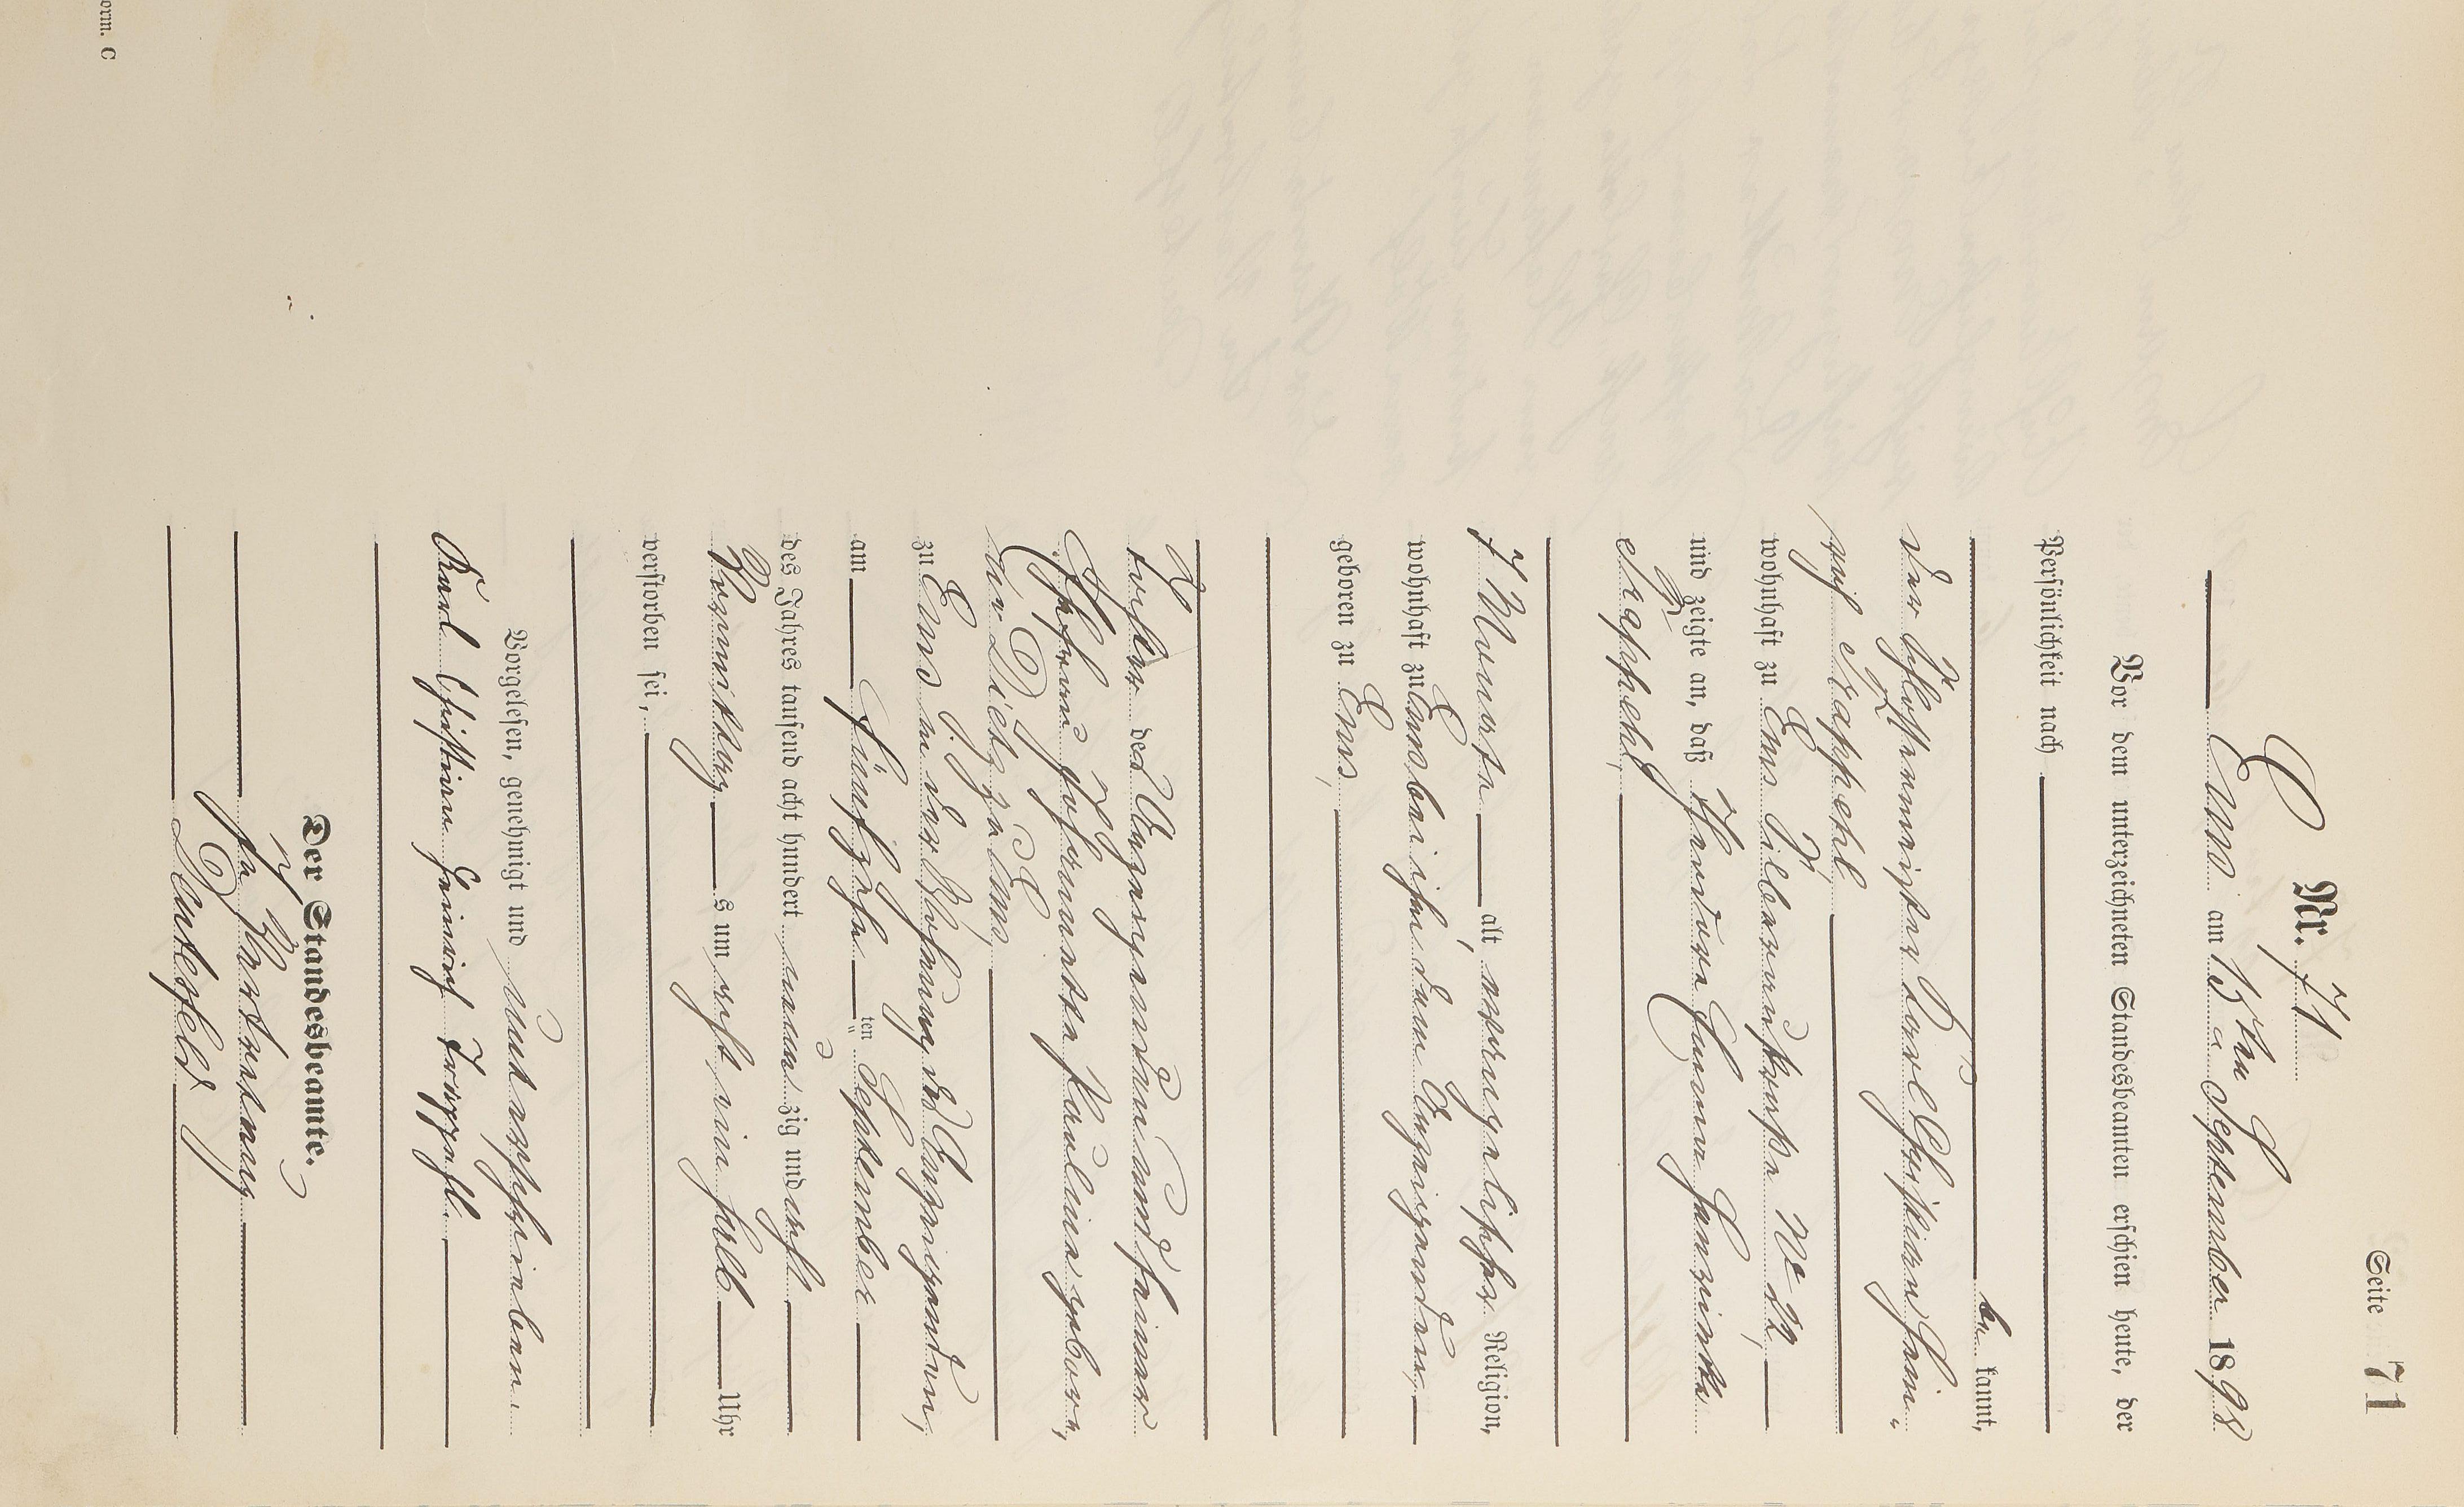 Seite 71
Nr. 71
Ems am 15ten September 1898.
Vor dem unterzeichneten Standesbeamten erschien heute, der
Persönlichkeit nach
be kannt,
der Schlossermeister Karl Christian Hein-
rich Trappehl
wohnhaft zu Ems Silberaustraße No 22,
und zeigte an, daß Theodore Emma Henriette
Trappehl,
7 Monate alt, evangelischer Religion,
wohnhaft zu Ems bei ihm dem Anzeigenden,
geboren zu Ems,
Tochter des Anzeigenden und seiner
Ehefrau geborenen Pauline geboren,
zu Ems in der Wohnung des Anzeigenden,
am fünfzehnten September
des Jahres tausend acht hundert neunzig und acht
Vormittags um acht ein halb Uhr
verstorben sei,
Vorgelesen, genehmigt und unterschrieben
Karl Christian Heinrich Trappehl.
Der Standesbeamte.
In Vertretung
orm. C